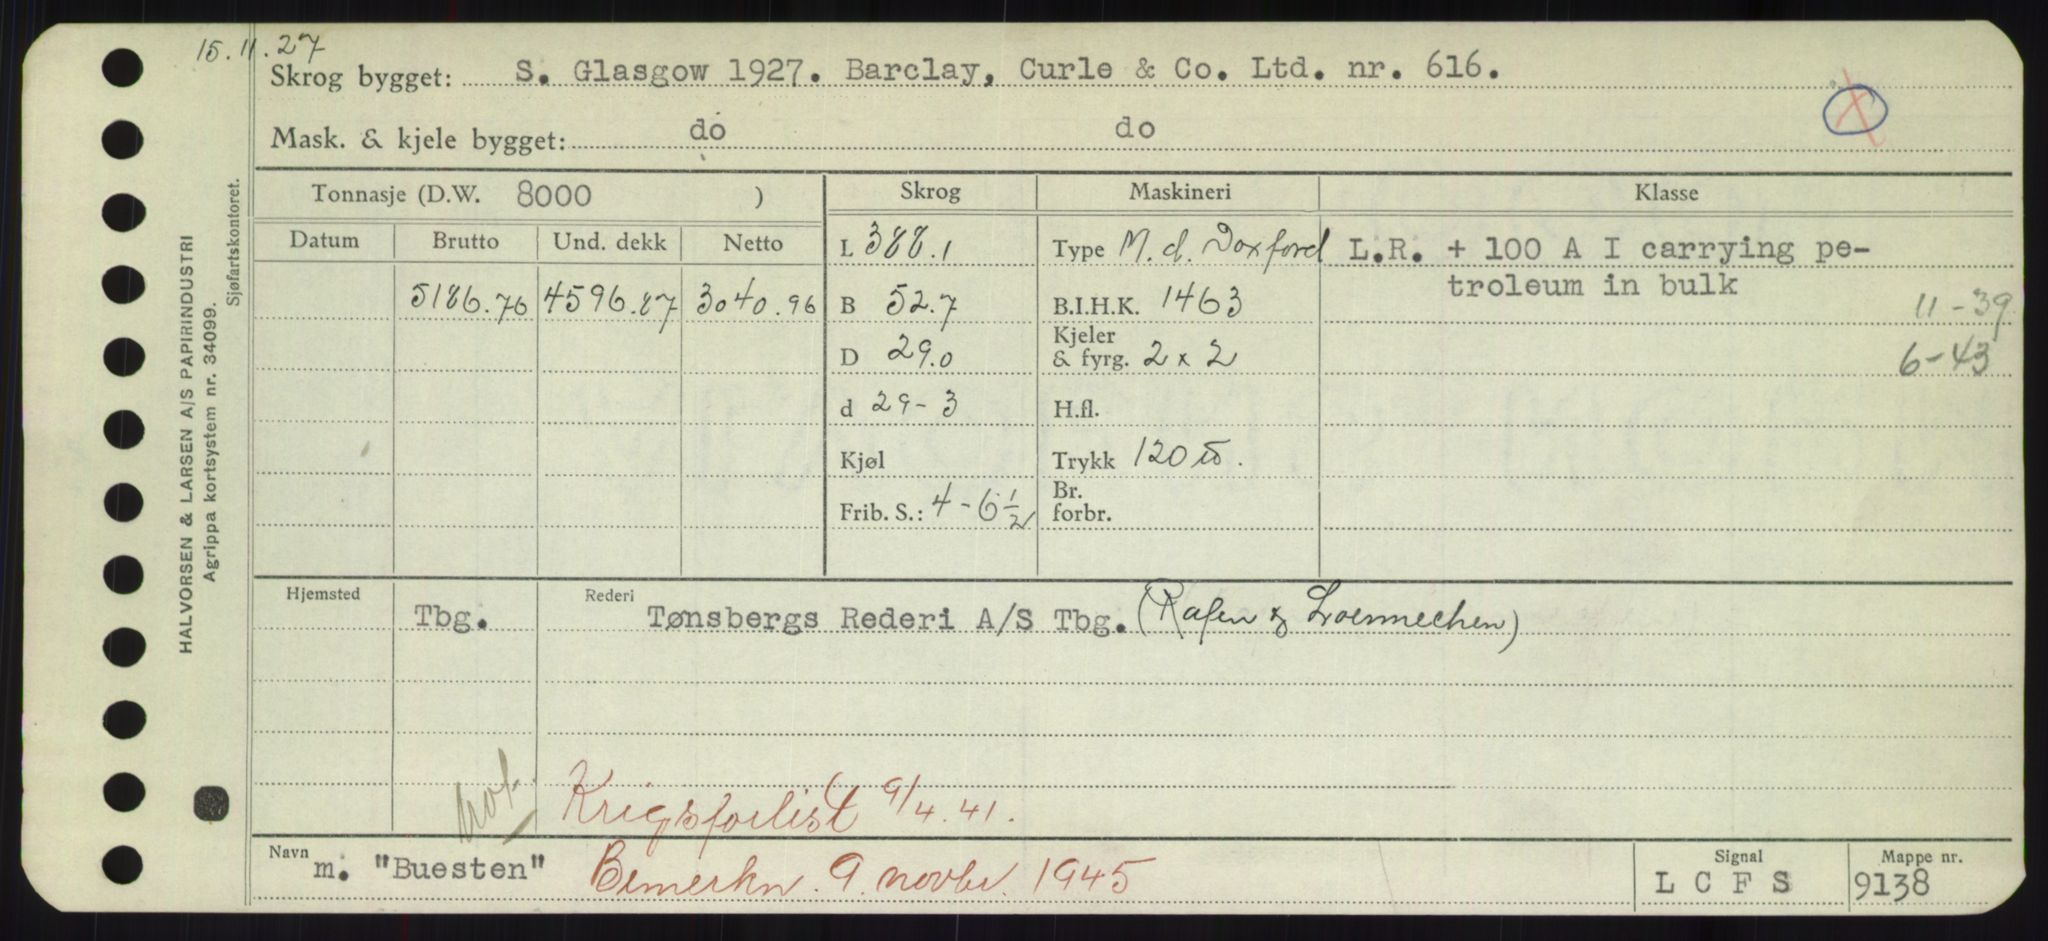 15.11.27
Skrog bygget: S. Glasgow 1927. Barclay, Curle & Co. Ltd. nr. 616.
Mask. & kjele bygget: do do
Tonnasje (D.W. 8000 ) Skrog Maskineri Klasse
Datum Brutto Und. dekk Netto L 388.1 Type M. d. Doxford L.R. + 100 A I carrying pe-
troleum in bulk
5186.76 4596.87 3040.96 B 52.7 B.I.H.K. 1463 11-39
D 29.0 Kjeler & fyrg. 2 x 2 6-43
d 29-3 H.fl.
Kjøl Trykk 120 lb.
Frib. S.: 4-6½ Br. forbr.
Hjemsted Tbg. Rederi Tønsbergs Rederi A/S Tbg. (Rafen & Loennechen)
Krigsforlist 9/4.41.
Navn m. "Buesten" Bemerkn. 9. novbr. 1945 Signal L C F S Mappe nr. 9138
HALVORSEN & LARSEN A/S PAPIRINDUSTRI
Agrippa kortsystem nr. 34099.
Sjøfartskontoret.